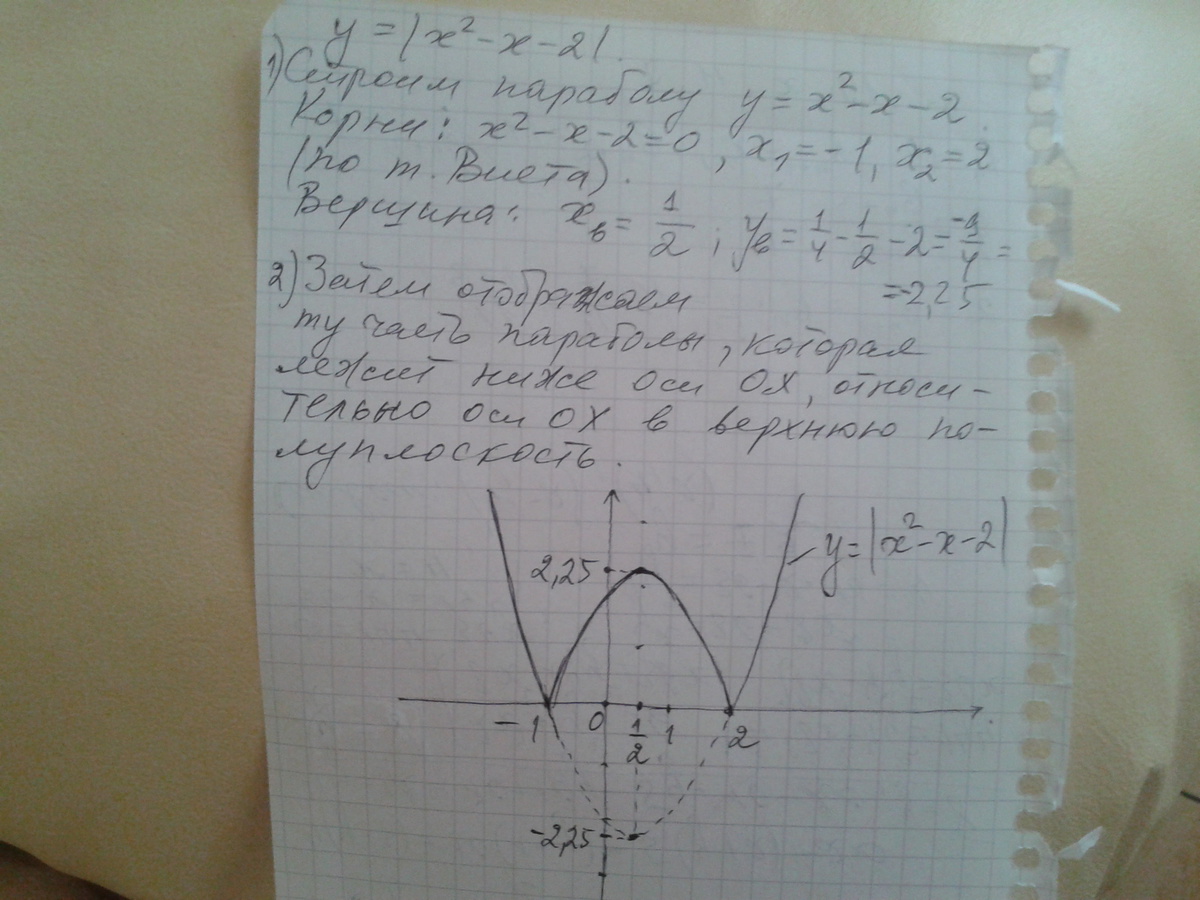 y = |x² - x - 2|.
1) Строим параболу y = x² - x - 2.
Корни: x² - x - 2 = 0, x₁ = -1, x₂ = 2
(по т. Виета).
Вершина: xв = 1/2; yв = 1/4 - 1/2 - 2 = -9/4 =
= -2,25
2) Затем отображаем
ту часть параболы, которая
лежит ниже оси OX, относи-
тельно оси OX в верхнюю по-
луплоскость.
y = |x² - x - 2|
2,25
-1 0 1/2 1 2
-2,25